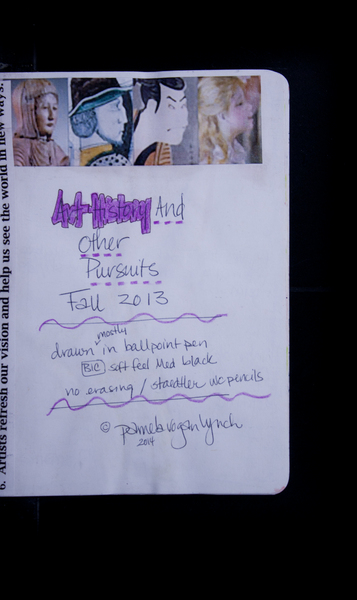 6. Artists refresh our vision and help us see the world in new ways.
Art History And
Other
Pursuits
Fall 2013
mostly
drawn in ballpoint pen
BIC soft feel Med black
no erasing / staedtler wc pencils
© pamela vogan lynch
2014